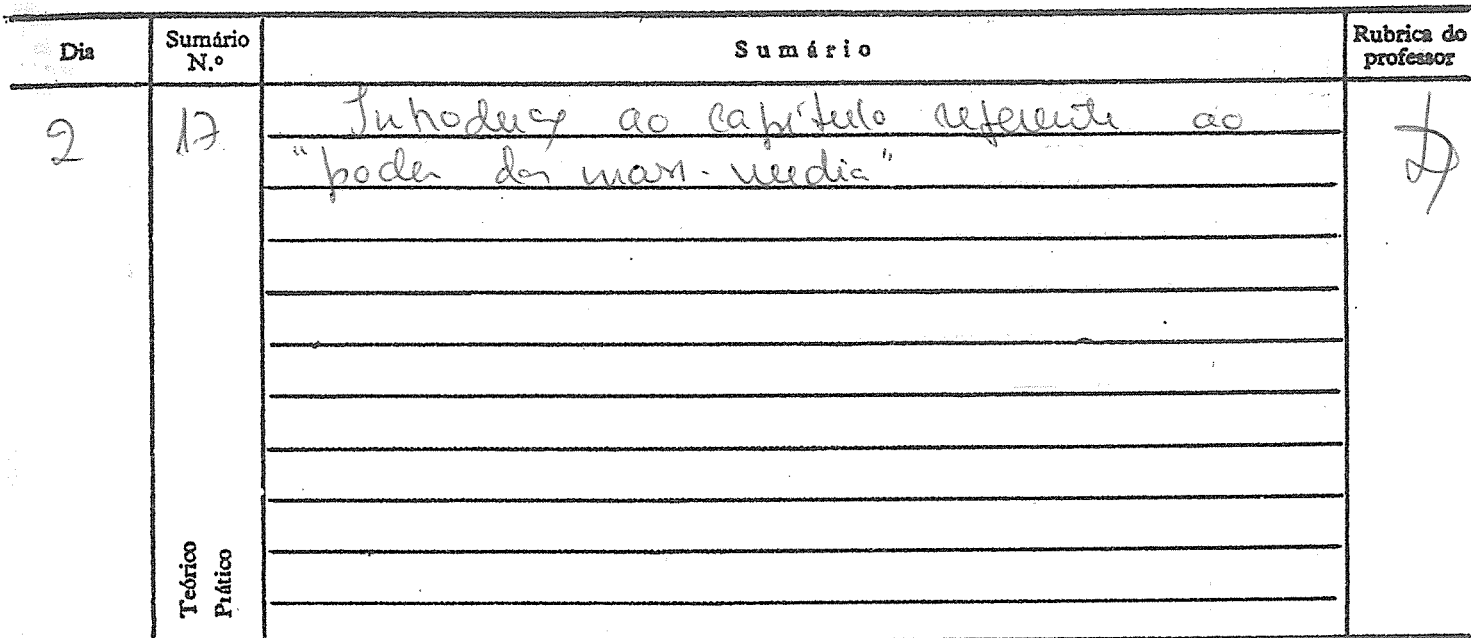 Dia Sumário N.º Sumário Rubrica do professor
2 17 Introdução ao capítulo referente ao
"poder dos mass-media"
Teórico
Prático